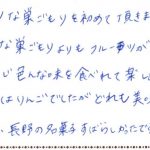 りな巣ごもりを初めて頂きま
な巣ごもりよりもフルーツが
じ色んな味を食べれて楽し
はりんごでしたがどれも美の
、長野の名菓子すばらしかったで